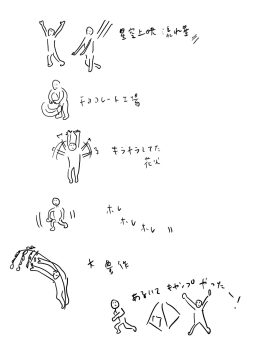 星空上映:流れ星
チョコレート工場
キラキラしてた
花火
ホレ
ホレ
ホレ
大豊作
あるいて キャンプ やったー!